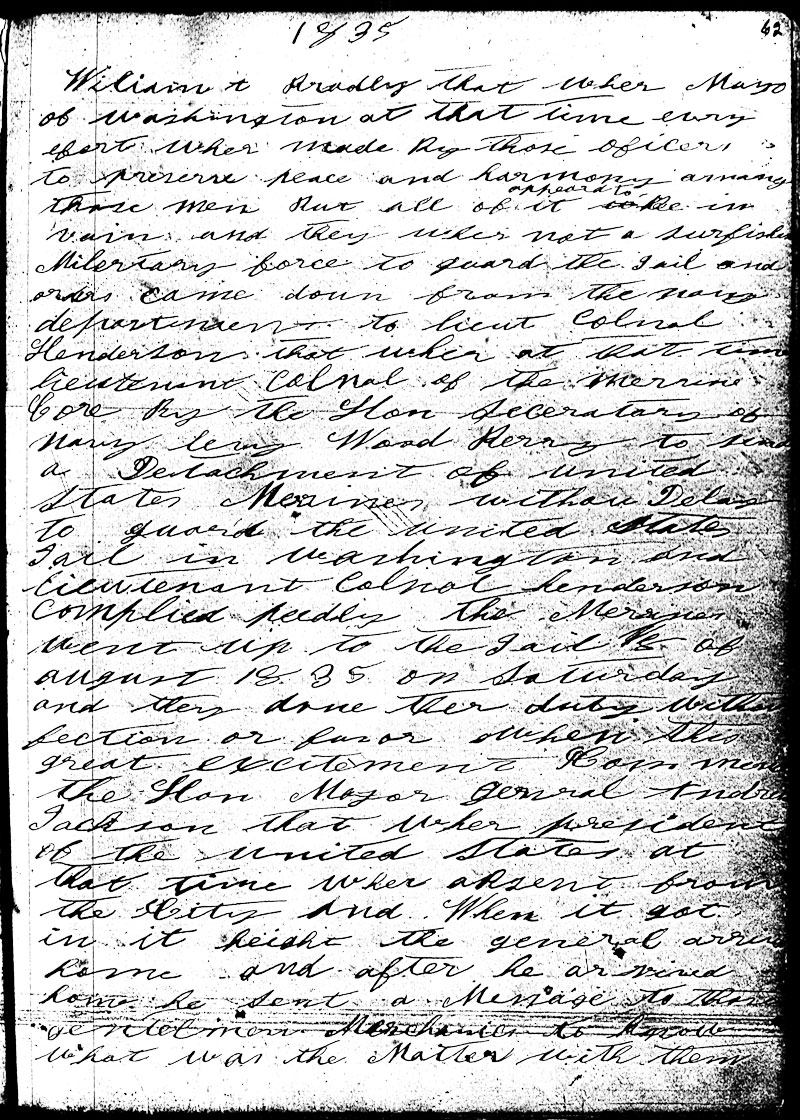 1835
62
Wiliam t Bradly that wher Mayo
of washington at that time evry
efort wher made By those oficers
to preserve peace and harmony amang
those men But all of it appeard to Be in
vain and they wher not a surfishen
Milertary force to guard the Jail and
orders came down from the navy
department to lieut Colnal
Henderson that wher at that time
lieutenant Colnal of the Merrine
Core By the Hon Seceratary of
Navy levy Wood Berry to send
a Detachment of united
States Merines withou Delay
to guard the united States
Jail in washington and
lieutenant Colnol henderson
complied peedly the Merines
went up to the Jail of
august 1835 on Saturday
and they done ther duty withou
fection or favor when this
great excitement Commen
the Hon Major genral Andre
Jackson that wher president
of the united States at
that time wher absent from
the City and When it got
in it height the general arrive
home and after he arrived
home he sent a Message to those
gentelmen Mechanics to know
what was the Matter with them